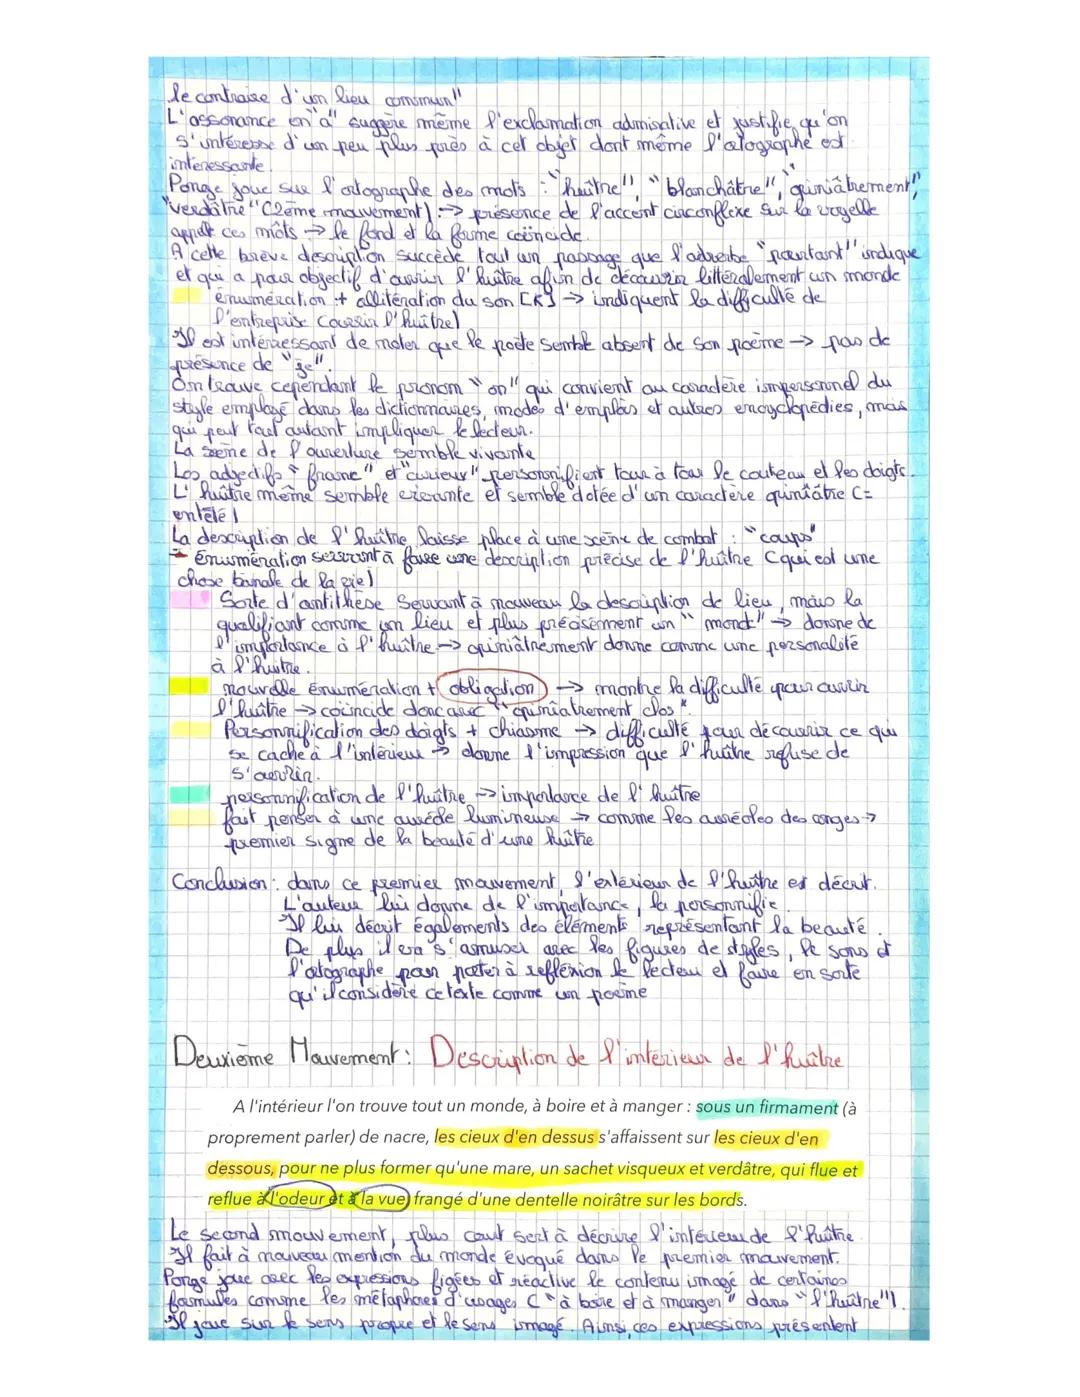 le contraire d'un lieu commun"
L'assonance en "a" suggère même l'exclamation admirative et justifie qu'on
s'intéresse d'un peu plus près à cet objet dont même l'otographe est
interessante.
Ponge joue sur l'ortographe des mots : "huître", "blanchâtre", "opiniâtrement",
"verdâtre" (2ème mouvement) :→ présence de l'accent circonflexe sur la voyelle
appelle ces mots → le fond et la forme coïncide.
A cette brève description succède tout un passage que l'adverbe "pourtant" indique
et qui a pour objectif d'ouvrir l'huître afin de découvrir littéralement un monde
énumération + allitération du son [K] → indiquent la difficulté de
l'entreprise (ouvrir l'huître)
Il est intéressant de noter que le poète semble absent de son poème → pas de
présence de "je".
On trouve cependant le pronom "on" qui convient au caractère impersonnel du
style employé dans les dictionnaires, modes d'emplois et autres encyclopédies, mais
qui peut tout autant impliquer le lecteur.
La scène de l'ouverture semble vivante
Les adjectifs "franc" et "curieux" personnifient tour à tour le couteau et les doigts.
L'huître même semble vivante et semble dotée d'un caractère opiniâtre (=
entêté)
La description de l'huître laisse place à une scène de combat : "coups"
- énumération servant à faire une description précise de l'huître (qui est une
chose banale de la vie)
Sorte d'antithèse servant à nouveau la description de lieu, mais la
qualifiant comme un lieu et plus précisément un "monde" → donne de
l'importance à l'huître → opiniâtrement donne comme une personalité
à l'huître.
nouvelle énumération + obligation → montre la difficulté pour ouvrir
l'huître → coïncide donc avec "opiniatrement clos".
Personnification des doigts + chiasme → difficulté pour découvrir ce qui
se cache à l'intérieur → donne l'impression que l'huître refuse de
s'ouvrir.
personnification de l'huître → importance de l'huître
fait penser à une auréole lumineuse → comme les auréoles des anges →
premier signe de la beauté d'une huître
Conclusion : dans ce premier mouvement, l'extérieur de l'huître est décrit.
L'auteur lui donne de l'importance, la personnifie.
Il lui décrit également des éléments représentant la beauté.
De plus il va s'amuser avec les figures de styles, le sons et
l'otographe pour porter à réflexion le lecteur et faire en sorte
qu'il considère ce texte comme un poème
Deuxième Mouvement : Description de l'intérieur de l'huître
A l'intérieur l'on trouve tout un monde, à boire et à manger : sous un firmament (à
proprement parler) de nacre, les cieux d'en dessus s'affaissent sur les cieux d'en
dessous, pour ne plus former qu'une mare, un sachet visqueux et verdâtre, qui flue et
reflue à l'odeur et à la vue, frangé d'une dentelle noirâtre sur les bords.
Le second mouvement, plus court sert à décrire l'intérieur de l'huître.
Il fait à nouveau mention du monde évoqué dans le premier mouvement.
Ponge joue avec les expressions figées et réactive le contenu imagé de certaines
formules comme les métaphores d'usages ("à boire et à manger" dans "l'huître").
Il joue sur le sens propre et le sens imagé. Ainsi, ces expressions présentent